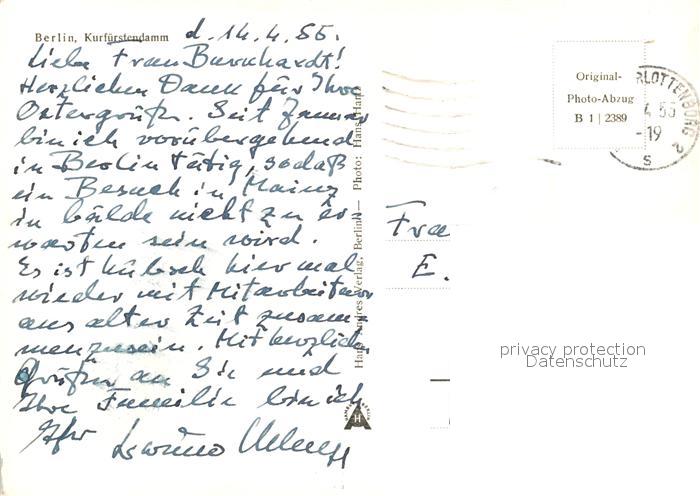 Berlin, Kurfürstendamm
d. 14.4.55.
Liebe Frau Burkhardt!
Herzlichen Dank für Ihre
Ostergrüße. Seit Januar
bin ich vorübergehend
in Berlin tätig, sodaß
ein Besuch in Mainz
in bälde nicht zu er-
warten sein wird.
Es ist hübsch hier mal
wieder mit Mitarbeitern
aus alter Zeit zusam-
menzusein. Mit herzlichen
Grüßen an Sie und
Ihre Familie bin ich
Ihr
Hans Andres Verlag, Berlin — Photo: Hans Hartz
Original-
Photo-Abzug
B 1 | 2389
RLOTTENBURG 2
4 55
-19
s
Fra
E.
privacy protection
Datenschutz
H